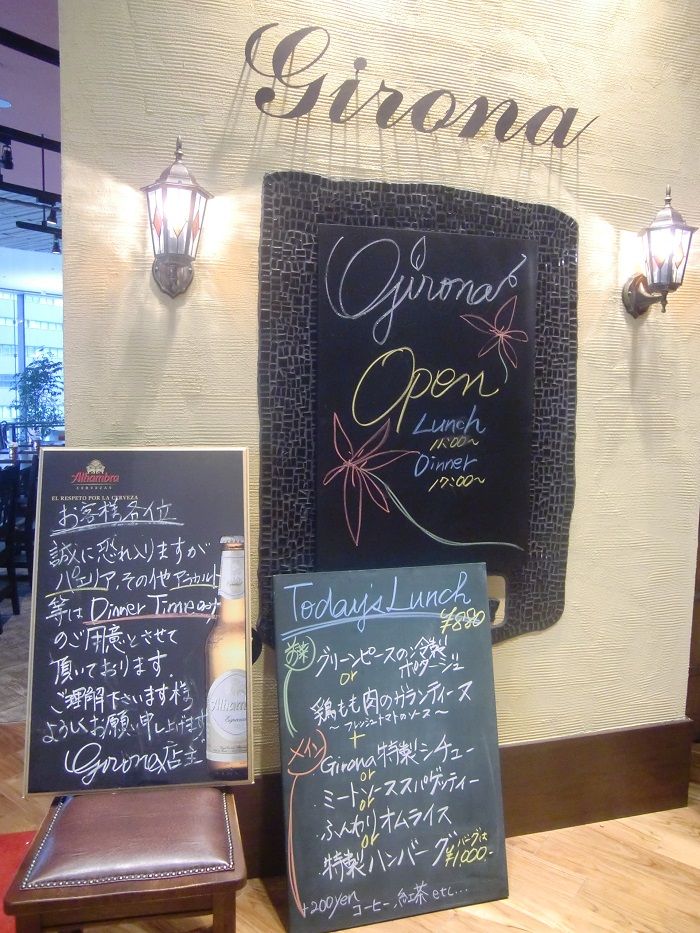 Girona
Girona
Open
Lunch
11:00〜
Dinner
17:00〜
Alhambra
CERVEZAS
EL RESPETO POR LA CERVEZA
お客様各位
誠に恐れ入りますが
パエリア、その他アラカルト
等はDinner Timeのみ
のご用意とさせて
頂いております。
ご理解下さいます様
よろしくお願い申し上げます。
Girona店主
Alhambra
Today's Lunch
¥880
前菜
グリーンピースの冷製
ポタージュ
or
鶏もも肉のガランティーヌ
〜フレッシュトマトのソース〜
+
メイン
Girona特製シチュー
or
ミートソーススパゲッティー
or
ふんわりオムライス
or
特製ハンバーグ
バーグは
¥1000-
+200yen コーヒー、紅茶 etc...